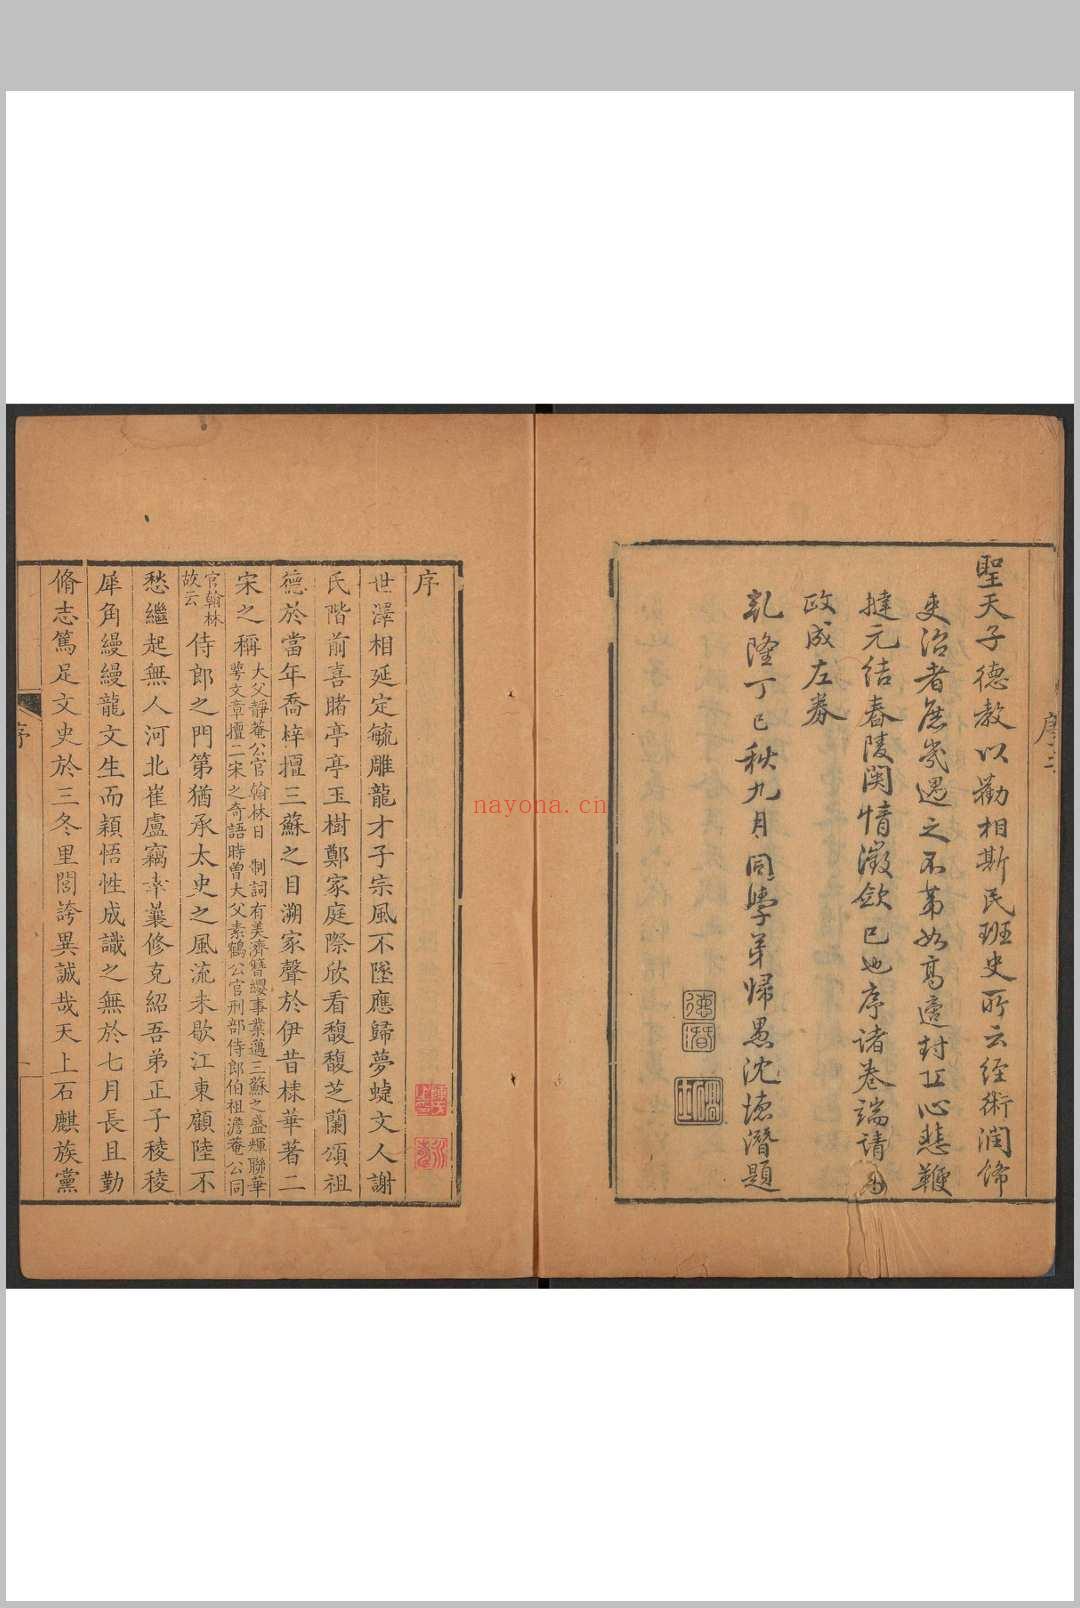 聖天子德教以勸相斯民班史所云經術潤飾
吏治者庶幾遇之不第如高適封丘心悲鞭
撻元結舂陵關情徵斂已也序諸卷端請為
政成左券
乾隆丁巳秋九月同學弟歸愚沈德潛題
德潛
序
世澤相延定毓雕龍才子宗風不墜應歸夢蜨文人謝
氏階前喜睹亭亭玉樹鄭家庭際欣看馥馥芝蘭頌祖
德於當年喬梓擅三蘇之目溯家聲於伊昔棣華著二
宋之稱
大父靜菴公官翰林日制詞有美濟簪纓事業邁三蘇之盛輝聯華
萼文章擅二宋之奇語時曾大父素鶴公官刑部侍郎伯祖澹菴公同
官翰林
故云
侍郎之門第猶承太史之風流未歇江東顧陸不
愁繼起無人河北崔盧竊幸曩修克紹吾弟正子稜稜
犀角縵縵龍文生而穎悟性成識之無於七月長且勤
脩志篤足文史於三冬里閭誇異誠哉天上石麒族黨
序
nayona.cn